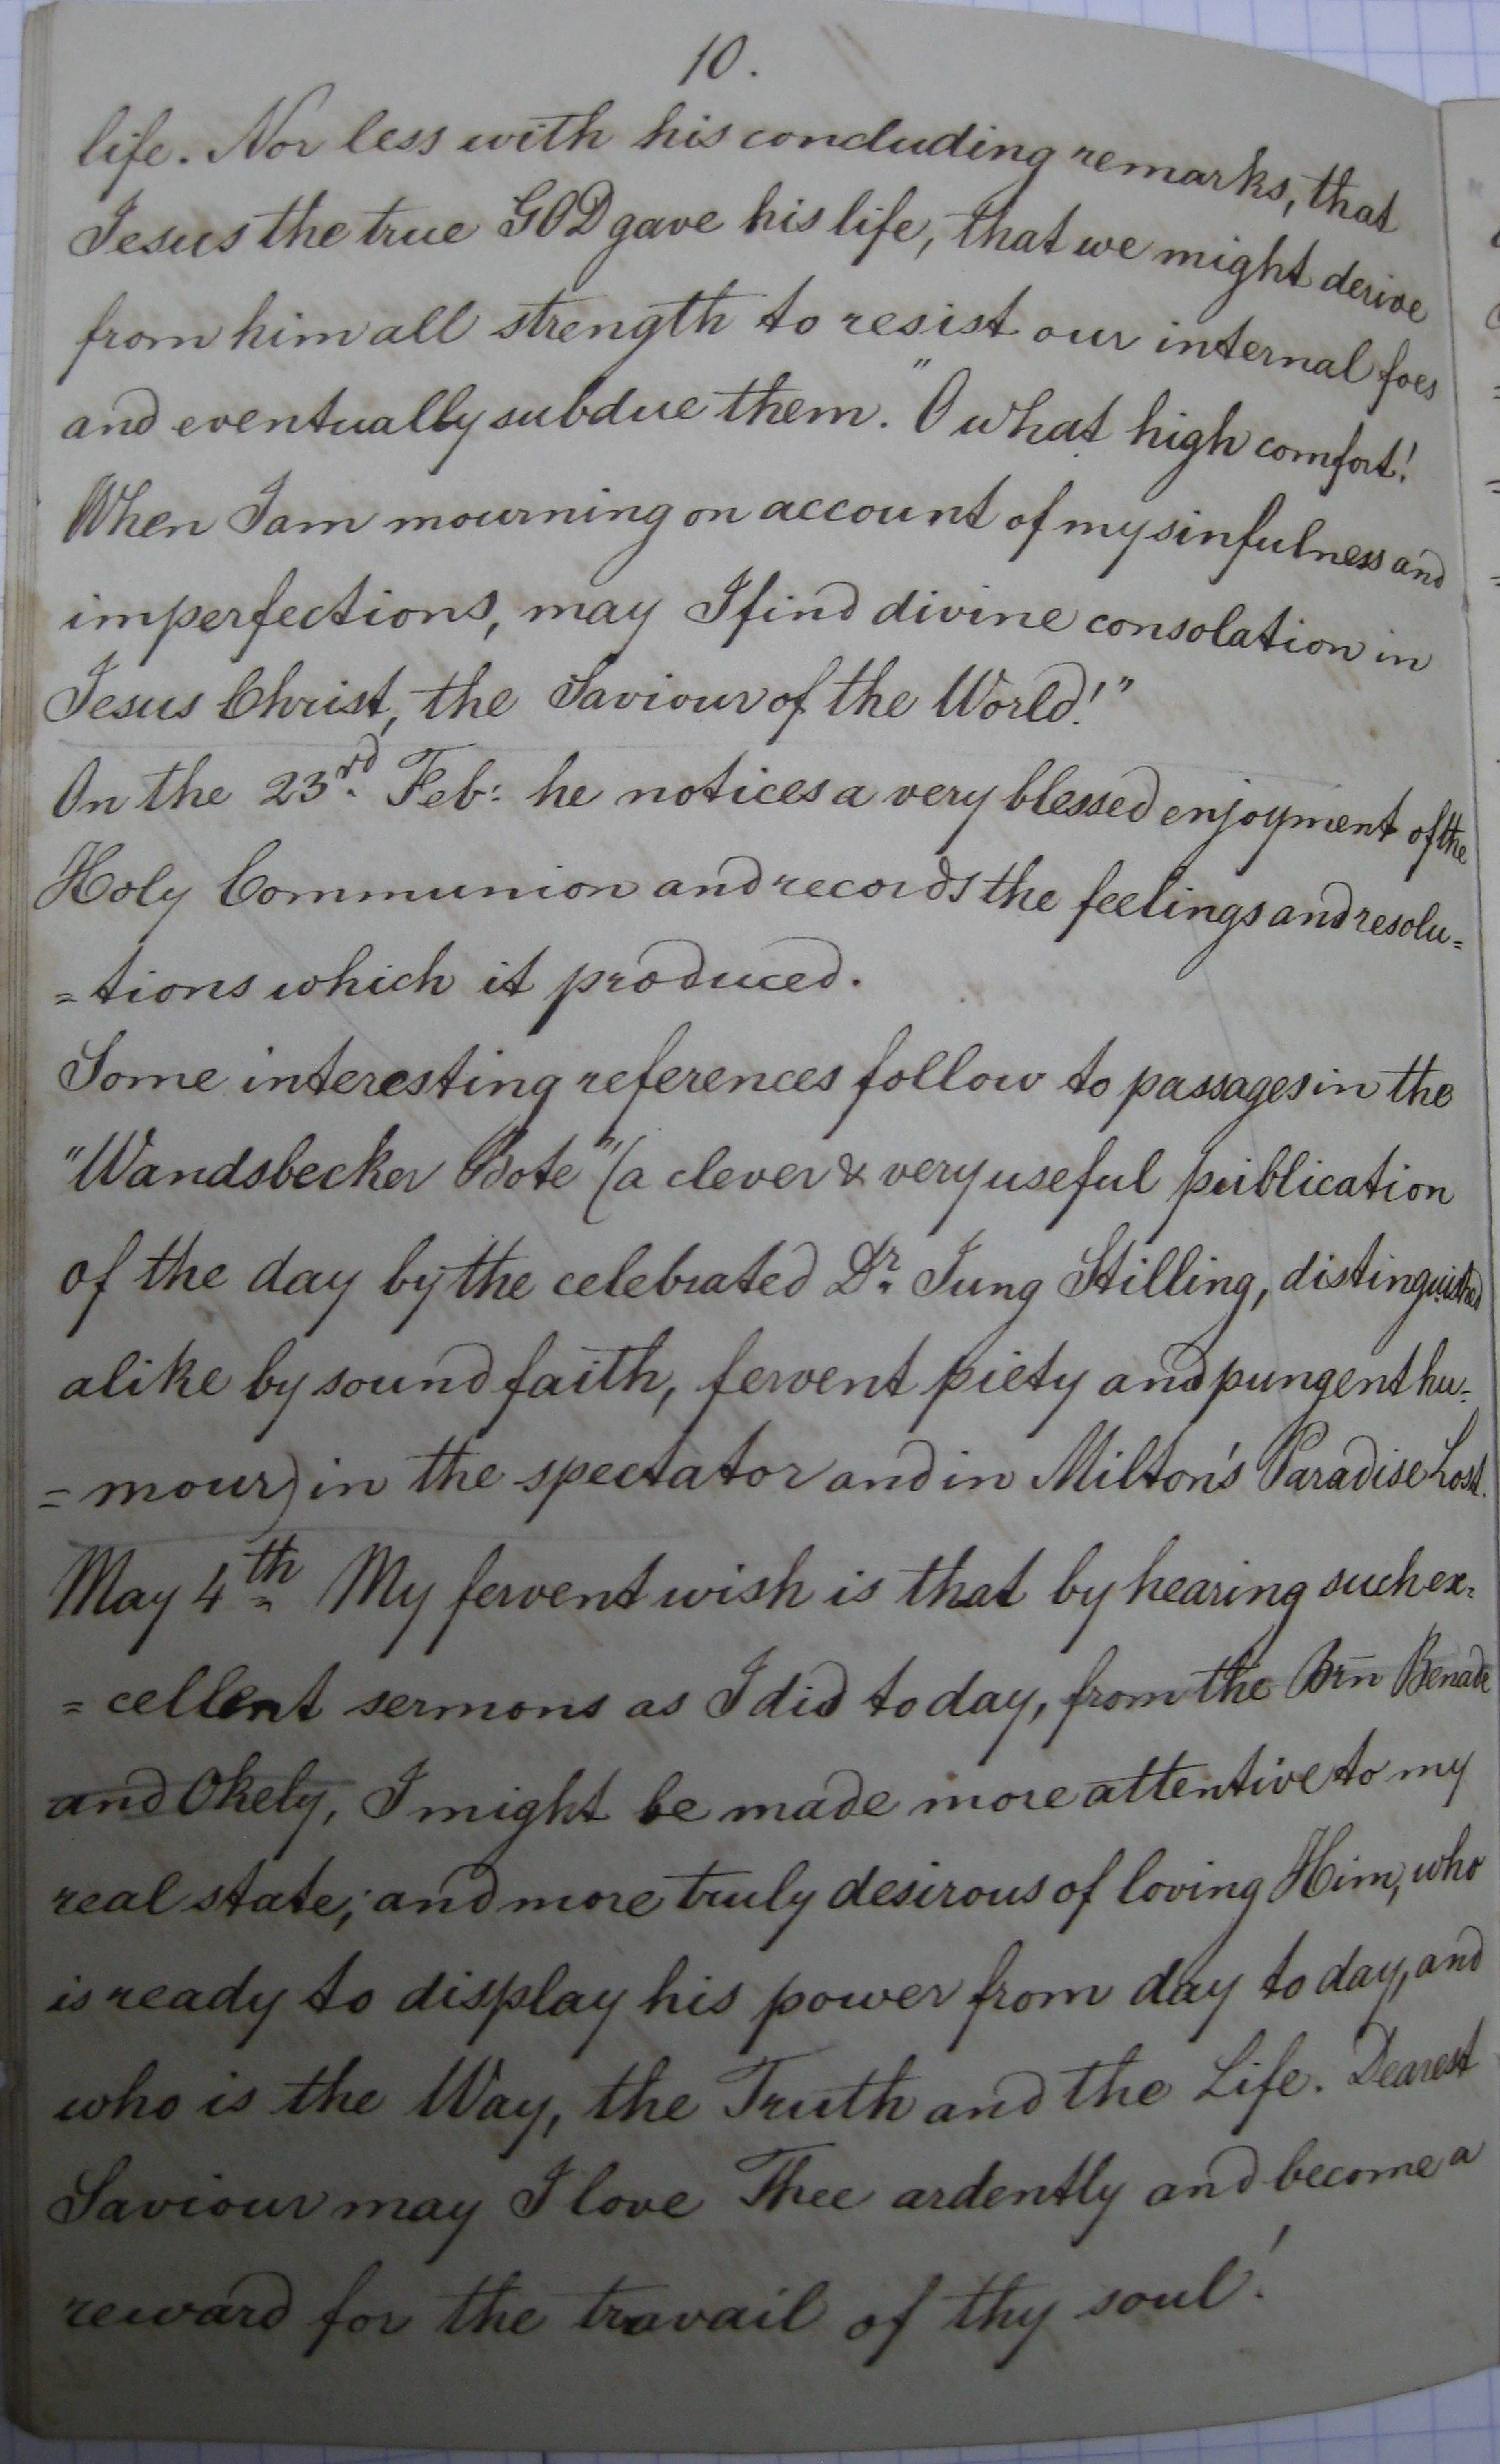 10.
life. Nor less with his concluding remarks, that
Jesus the true GOD gave his life, that we might derive
from him all strength to resist our internal foes
and eventually subdue them. "O what high comfort!
When I am mourning on account of my sinfulness and
imperfections, may I find divine consolation in
Jesus Christ, the Saviour of the World!"
On the 23rd. Feb: he notices a very blessed enjoyment of the
Holy Communion and records the feelings and resolu=
=tions which it produced.
Some interesting references follow to passages in the
"Wandsbecker Bote" (a clever & very useful publication
of the day by the celebrated Dr. Jung Stilling, distinguished
alike by sound faith, fervent piety and pungent hu=
=mour) in the spectator and in Milton's Paradise Lost.
May 4th My fervent wish is that by hearing such ex=
=cellent sermons as I did to day, from the Brn Benade
and Okely, I might be made more attentive to my
real state; and more truly desirous of loving Him, who
is ready to display his power from day to day, and
who is the Way, the Truth and the Life. Dearest
Saviour may I love Thee ardently and become a
reward for the travail of thy soul!